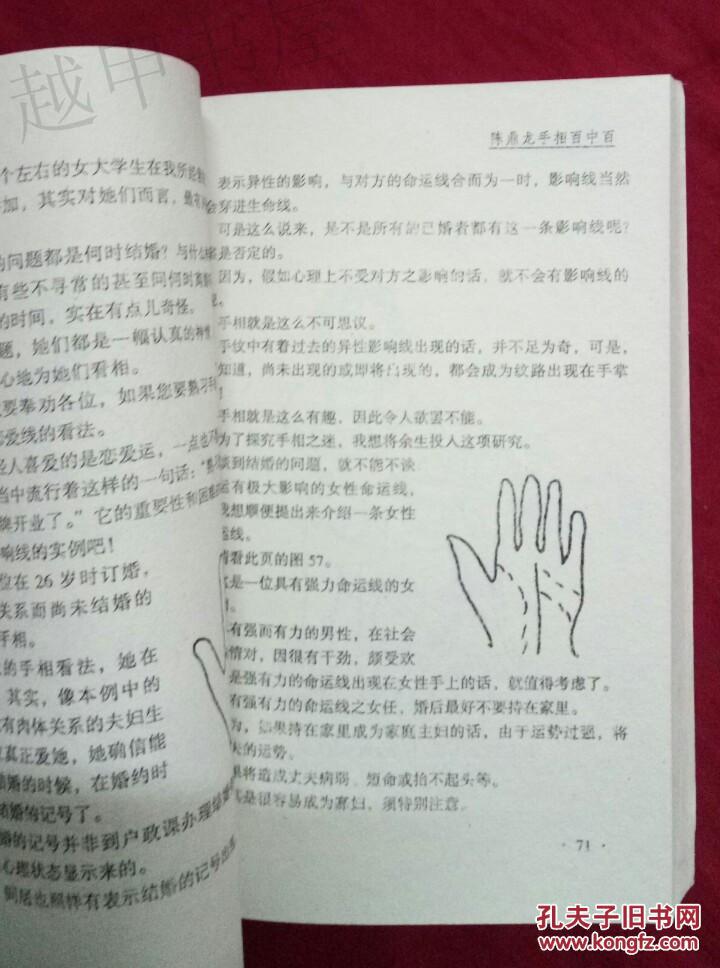 越甲书屋
个左右的女大学生在我所
加，其实对她们而言，最
的问题都是何时结婚？与什么
有些不寻常的甚至问何时离
的时间，实在有点儿奇怪。
题，她们都是一幅认真的神情
心地为她们看相。
要奉劝各位，如果您要熟习手
恋爱线的看法。
轻人喜爱的是恋爱运，一点也不
当中流行着这样的一句话：
牌开业了。”它的重要性和困难
响线的实例吧！
位在 26 岁时订婚，
关系而尚未结婚的
手相。
的手相看法，她在
其实，像本例中的
有肉体关系的夫妇生
真正爱她，她确信能
婚的时候，在婚约时
结婚的记号了。
婚的记号并非到户政课办理结婚
心理状态显示来的。
同居也照样有表示结婚的记号出现
陈鼎龙手相百中百
表示异性的影响，与对方的命运线合而为一时，影响线当然
穿进生命线。
可是这么说来，是不是所有的已婚者都有这一条影响线呢？
是否定的。
因为，假如心理上不受对方之影响的话，就不会有影响线的
手相就是这么不可思议。
手纹中有着过去的异性影响线出现的话，并不足为奇，可是，
知道，尚未出现的或即将出现的，都会成为纹路出现在手掌
！
手相就是这么有趣，因此令人欲罢不能。
为了探究手相之迷，我想将余生投入这项研究。
谈到结婚的问题，就不能不谈
运有极大影响的女性命运线，
我想顺便提出来介绍一条女性
运线。
请看此页的图 57。
是一位具有强力命运线的女
有强而有力的男性，在社会
情对，因很有干劲，颇受欢
是强有力的命运线出现在女性手上的话，就值得考虑了。
有强有力的命运线之女任，婚后最好不要持在家里。
为，如果持在家里成为家庭主妇的话，由于运势过强，将
夫的运势。
果将造成丈夫病弱、短命或抬不起头等。
是很容易成为寡妇，须特别注意。
· 71 ·
孔夫子旧书网
www.kongfz.com